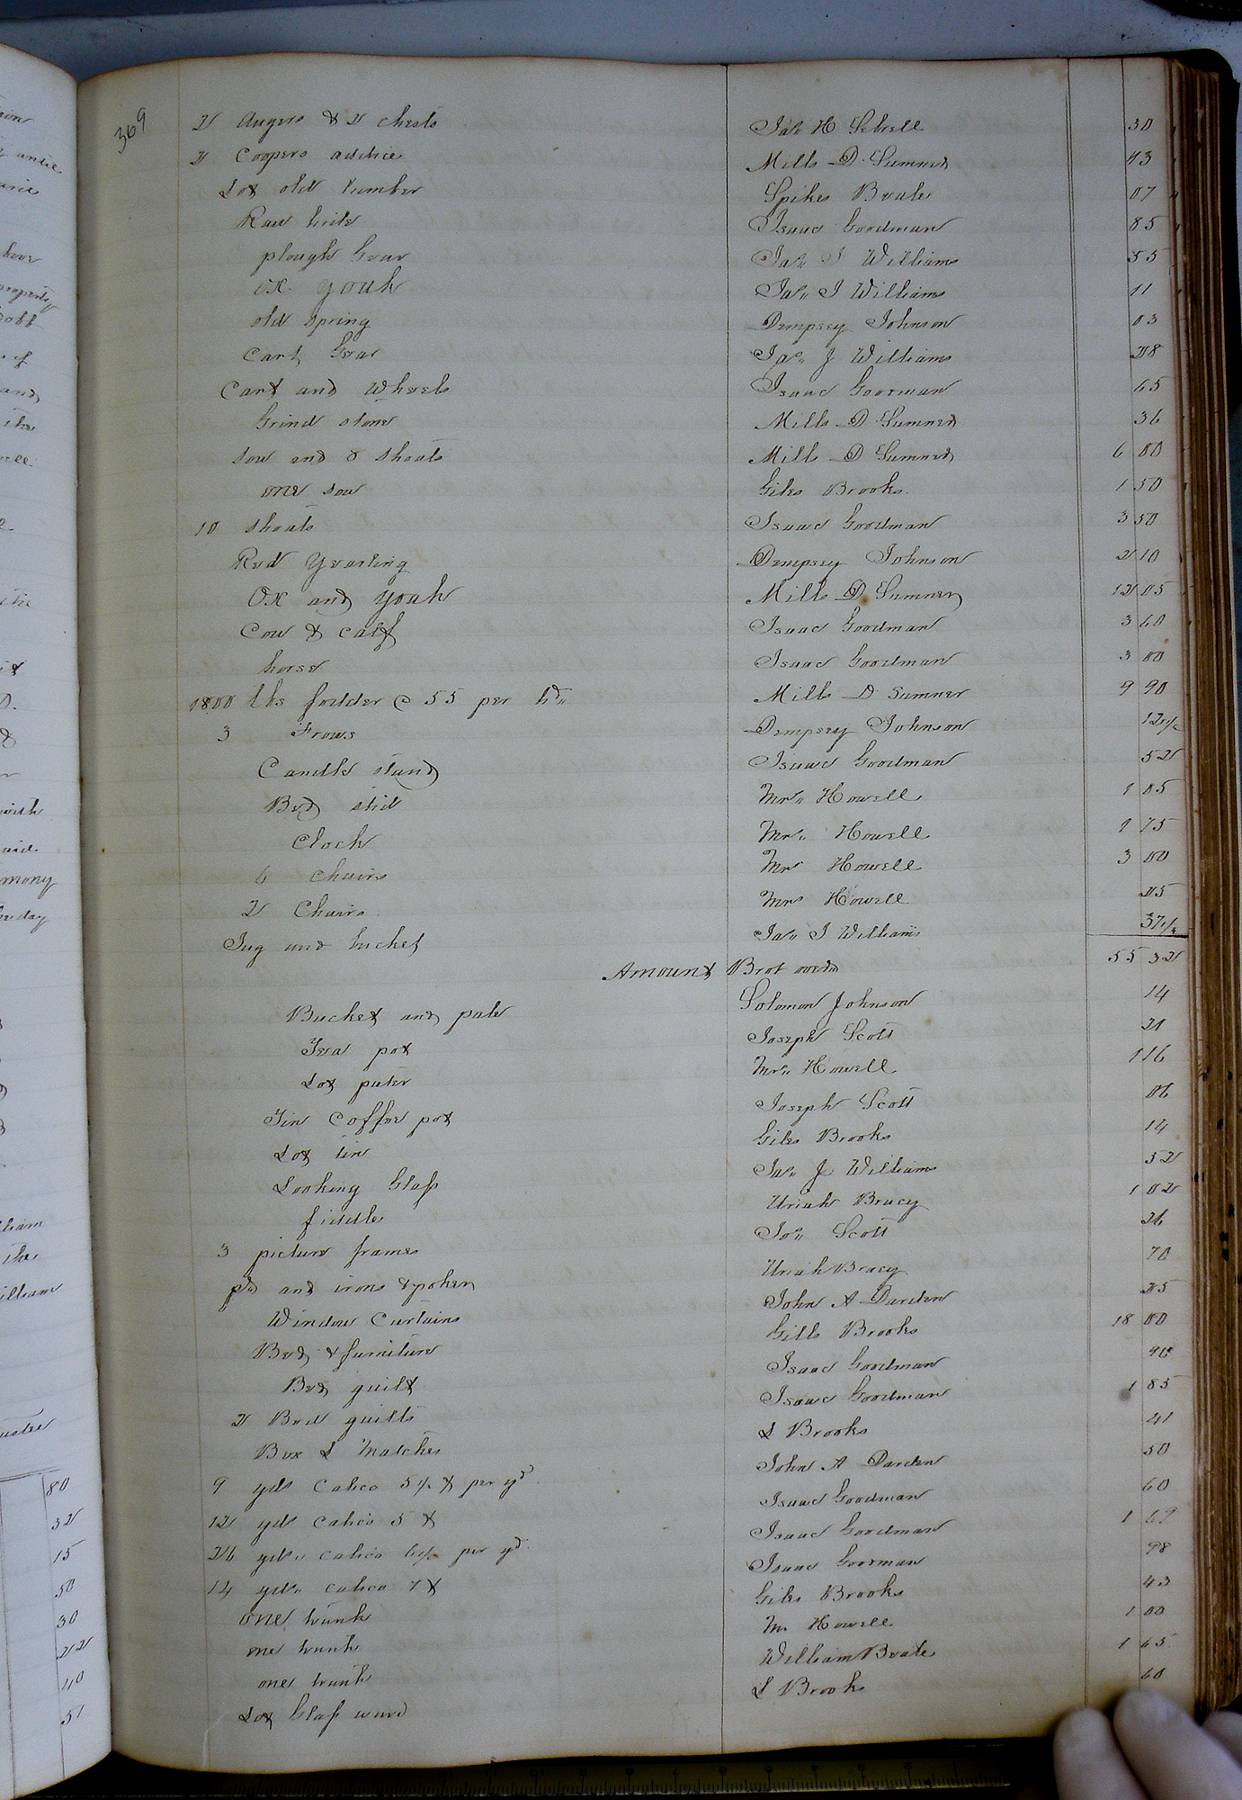 369
2 Augers & 2 chests Jas H Schell 30
2 Coopers addine Mills D. Sumner 43
Lot old lumber Spikes Beale 07
Raw hide Isaac Goodman 85
plough Gear Jas. J Williams 55
ox youk Jas. J Williams 11
old spring Dempsey Johnson 03
Cart Gear Jas. J. Williams 28
Cart and Wheels Isaac Goodman 65
Grind stone Mills D Sumner 36
sow and 8 shoats Mills D Sumner 6 00
one sow Giles Brooks. 1 50
10 shoats Isaac Goodman 3 50
Red Yearling Dempsey Johnson 2 10
Ox and youk Mills D Sumner 12 05
Cow & calf Isaac Goodman 3 60
horse Isaac Goodman 3 00
1800 lbs fodder @ 55 per hd. Mills D Sumner 9 90
3 Frows Dempsey Johnson 12 1/2
Candle stand Isaac Goodman 52
Bed stid Mrs. Howell 1 05
Clock Mrs. Howell 1 75
6 chairs Mrs Howell 3 00
2 Chairs Mrs Howell 25
Jug and bucket Jas. J Williams 37 1/2
Amount Brot over 55 32
Bucket and pale Solomon Johnson 14
Tea pot Joseph Scott 21
Lot puter Mrs. Howell. 1 16
Tin Coffee pot Joseph Scott 06
Lot tin Giles Brooks 14
Looking Glass Jas. J. Williams 52
fiddle Uriah Bracy 1 02
3 picture frames Jos. Scott 26
pr and irons & poker Uriah Bracy 70
Window Curtains John A Darden 25
Bed & furniture Gills Brooks 18 00
Bed quilt Isaac Goodman 90
2 Bed quilts Isaac Goodman 1 85
Box L Matches L Brooks 41
9 yds calico 5 1/2 ¢ per yd John A Darden 50
12 yds calico 5 ¢ Isaac Goodman 60
26 yds. calico 6 1/2 per yd Isaac Goodman 1 69
14 yds. calico 7 ¢ Isaac Goodman 98
one trunk Giles Brooks 43
one trunk M. Howell 1 00
one trunk William Beale 1 65
Lot Glass ware L Brooks 60
80
32
15
50
30
22
40
51